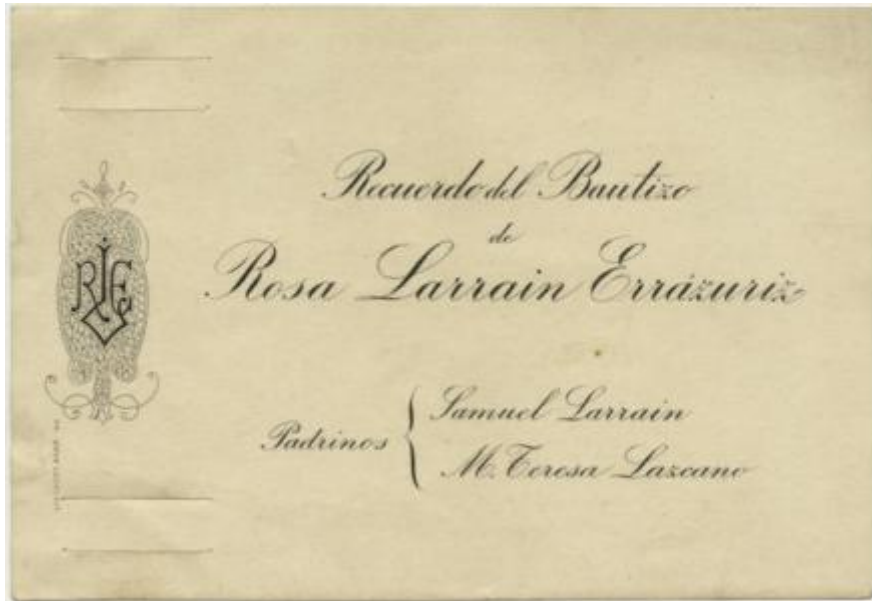 Recuerdo del Bautizo
de
Rosa Larrain Errázuriz
Padrinos
Samuel Larrain
M. Teresa Lazcano